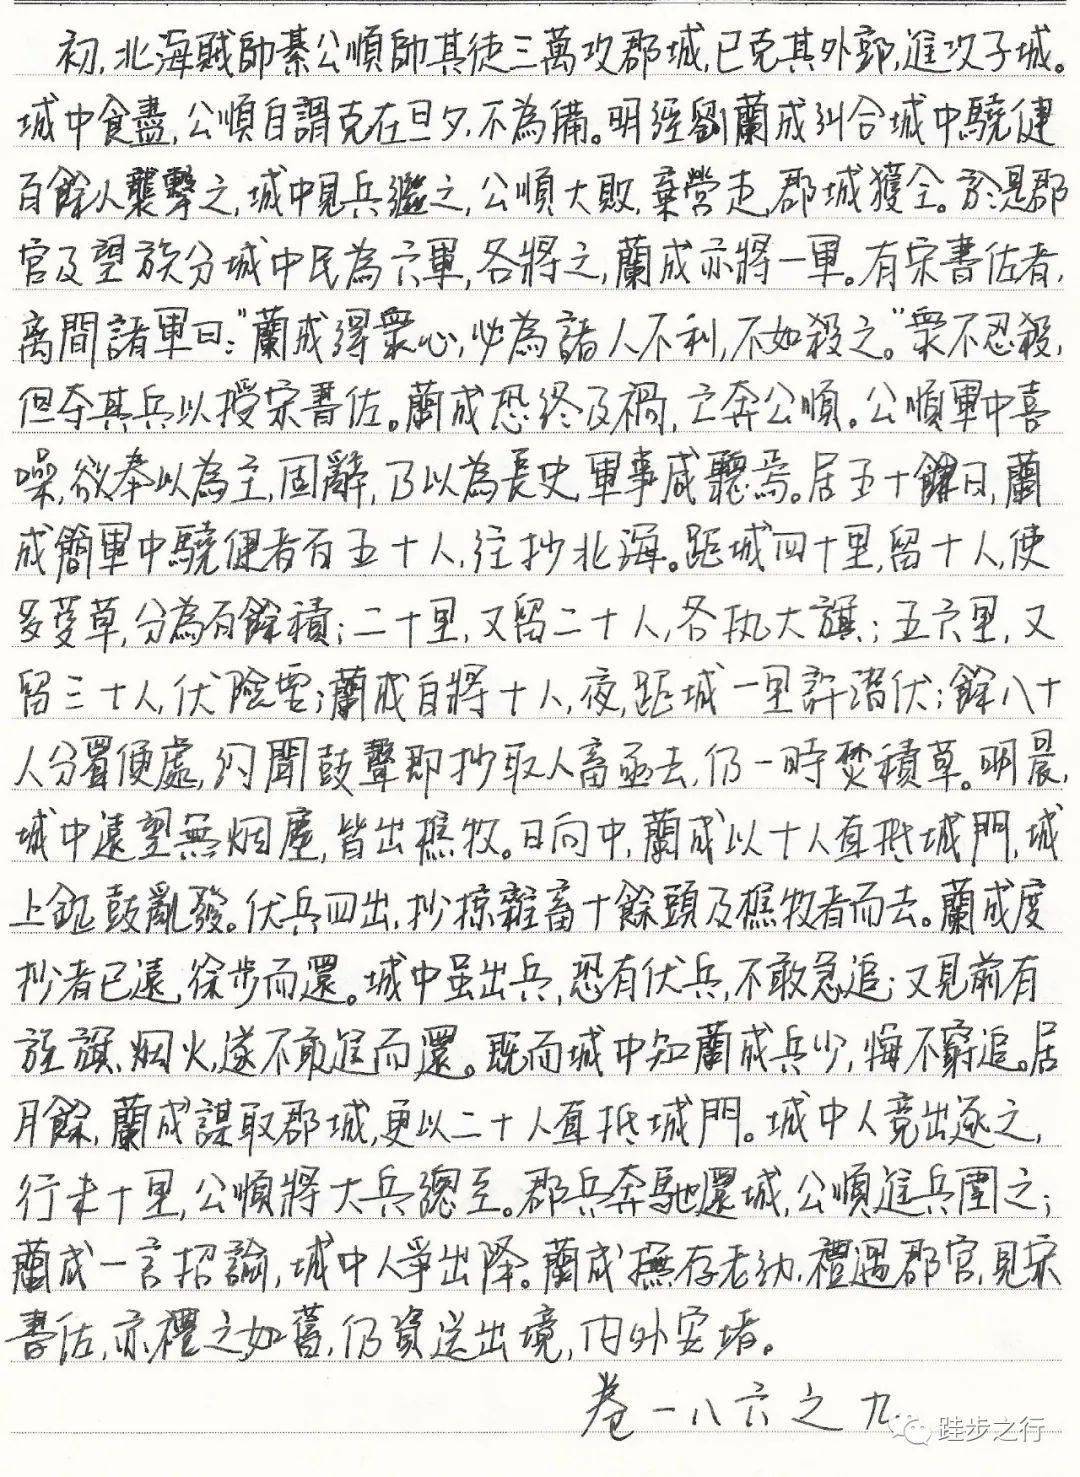 初,北海賊帥綦公順帥其徒三萬攻郡城,已克其外郭,進攻子城。
城中食盡,公順自謂克在旦夕,不為備。明經劉蘭成糾合城中驍健
百餘人襲擊之,城中見兵繼之,公順大敗,棄營走,郡城獲全。於是郡
官及望族分城中民為六軍,各將之,蘭成亦將一軍。有宋書佐者,
离間諸軍曰:“蘭成得衆心,必為諸人不利,不如殺之。”衆不忍殺,
但夺其兵以授宋書佐。蘭成恐終及禍,亡奔公順。公順軍中喜
噪,欲奉以為主,固辭,乃以為長史,軍事咸聽焉。居五十餘日,蘭
成簡軍中驍健者百五十人,往抄北海。距城四十里,留十人,使
多芟草,分為百餘積;二十里,又留二十人,各执大旗;五六里,又
留三十人,伏險要;蘭成自將十人,夜,距城一里許潛伏;餘八十
人分置便處,約聞鼓聲即抄取人畜亟去,仍一時焚積草。明晨,
城中遠望無烟塵,皆出樵牧。日向中,蘭成以十人直抵城門,城
上鉦鼓亂發。伏兵四出,抄掠雜畜十餘頭及樵牧者而去。蘭成度
抄者已遠,徐步而還。城中虽出兵,恐有伏兵,不敢急追;又見前有
旌旗、烟火,遂不敢追而還。既而城中知蘭成兵少,悔不窮追。居
月餘,蘭成謀取郡城,更以二十人直抵城門。城中人竟出逐之,
行未十里,公順將大兵總至。郡兵奔馳還城,公順進兵圍之;
蘭成一言招諭,城中人爭出降。蘭成撫存老幼,禮遇郡官,見宋
書佐,亦禮之如舊,仍資送出境,内外安堵。
卷一八六之九
跬步之行